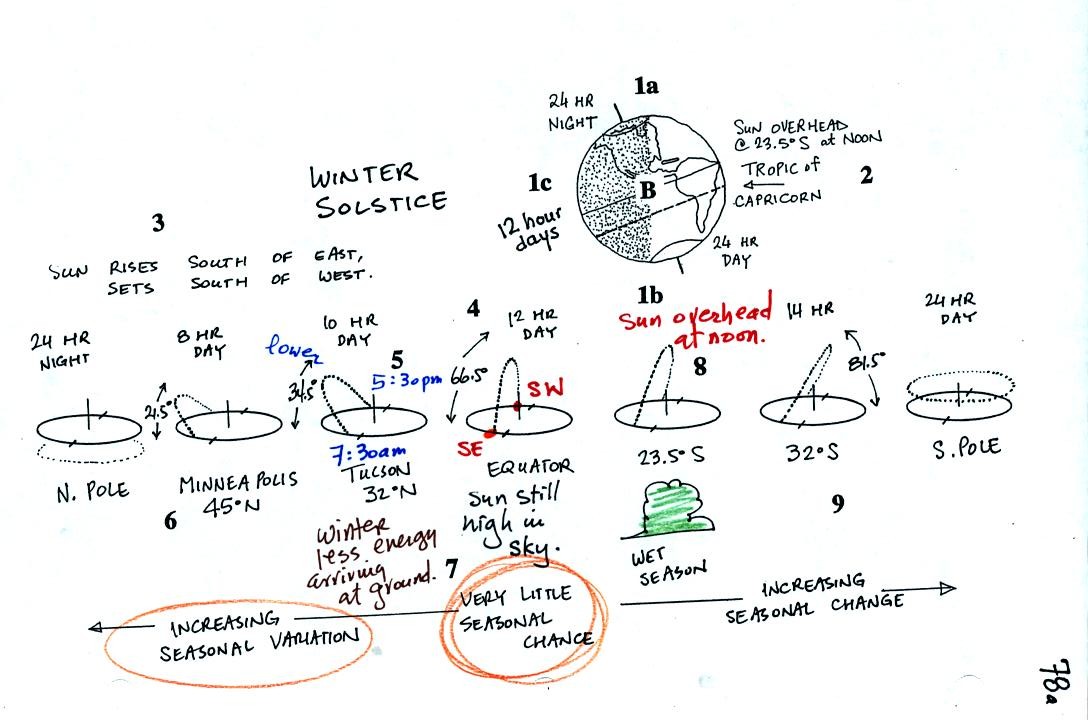 1a
24 HR
NIGHT
SUN OVERHEAD
@ 23.5° S at NOON
TROPIC of
CAPRICORN
2
WINTER
SOLSTICE
1c
B
12 hour
days
24 HR
DAY
3
SUN RISES SOUTH OF EAST,
SETS SOUTH OF WEST.
4
1b
24 HR
NIGHT
8 HR
DAY
lower
10 HR
DAY
12 HR
DAY
Sun overhead
at noon.
14 HR
24 HR
DAY
21.5°
34.5°
5
5:30pm
66.5°
SW
8
81.5°
SE
7:30am
N. POLE
MINNEAPOLIS
45°N
TUCSON
32°N
EQUATOR
23.5° S
32°S
S. POLE
6
Sun still
high in
sky.
9
winter
less energy
arriving
at ground.
WET
SEASON
7
VERY LITTLE
SEASONAL
CHANCE
INCREASING
SEASONAL VARIATION
INCREASING
SEASONAL CHANGE
78a